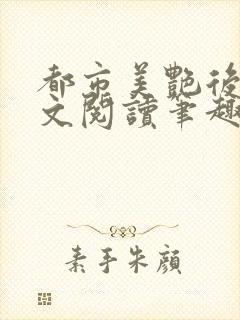 都市美艷後
文閱讀筆趣
素手朱顏